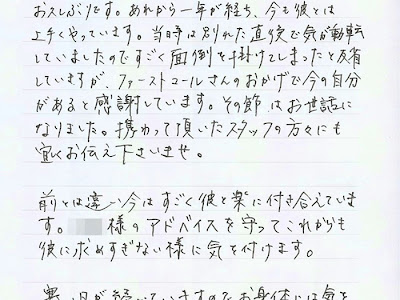 お久しぶりです。あれから一年が経ち、今も彼とは
上手くやっています。当時は別れた直後で気が動転
していましたのですごく面倒を掛けてしまったと反省
していますが、ファーストコールさんのおかげで今の自分
があると感謝しています。その節はお世話に
なりました。携わって頂いたスタッフの方々にも
宜しくお伝え下さいませ。
前とは違い今はすごく彼と楽に付き合えていま
す。様のアドバイスを守ってこれからも
彼に求めすぎない様に気を付けます。
寒い日が続いていますのでお身体には気を